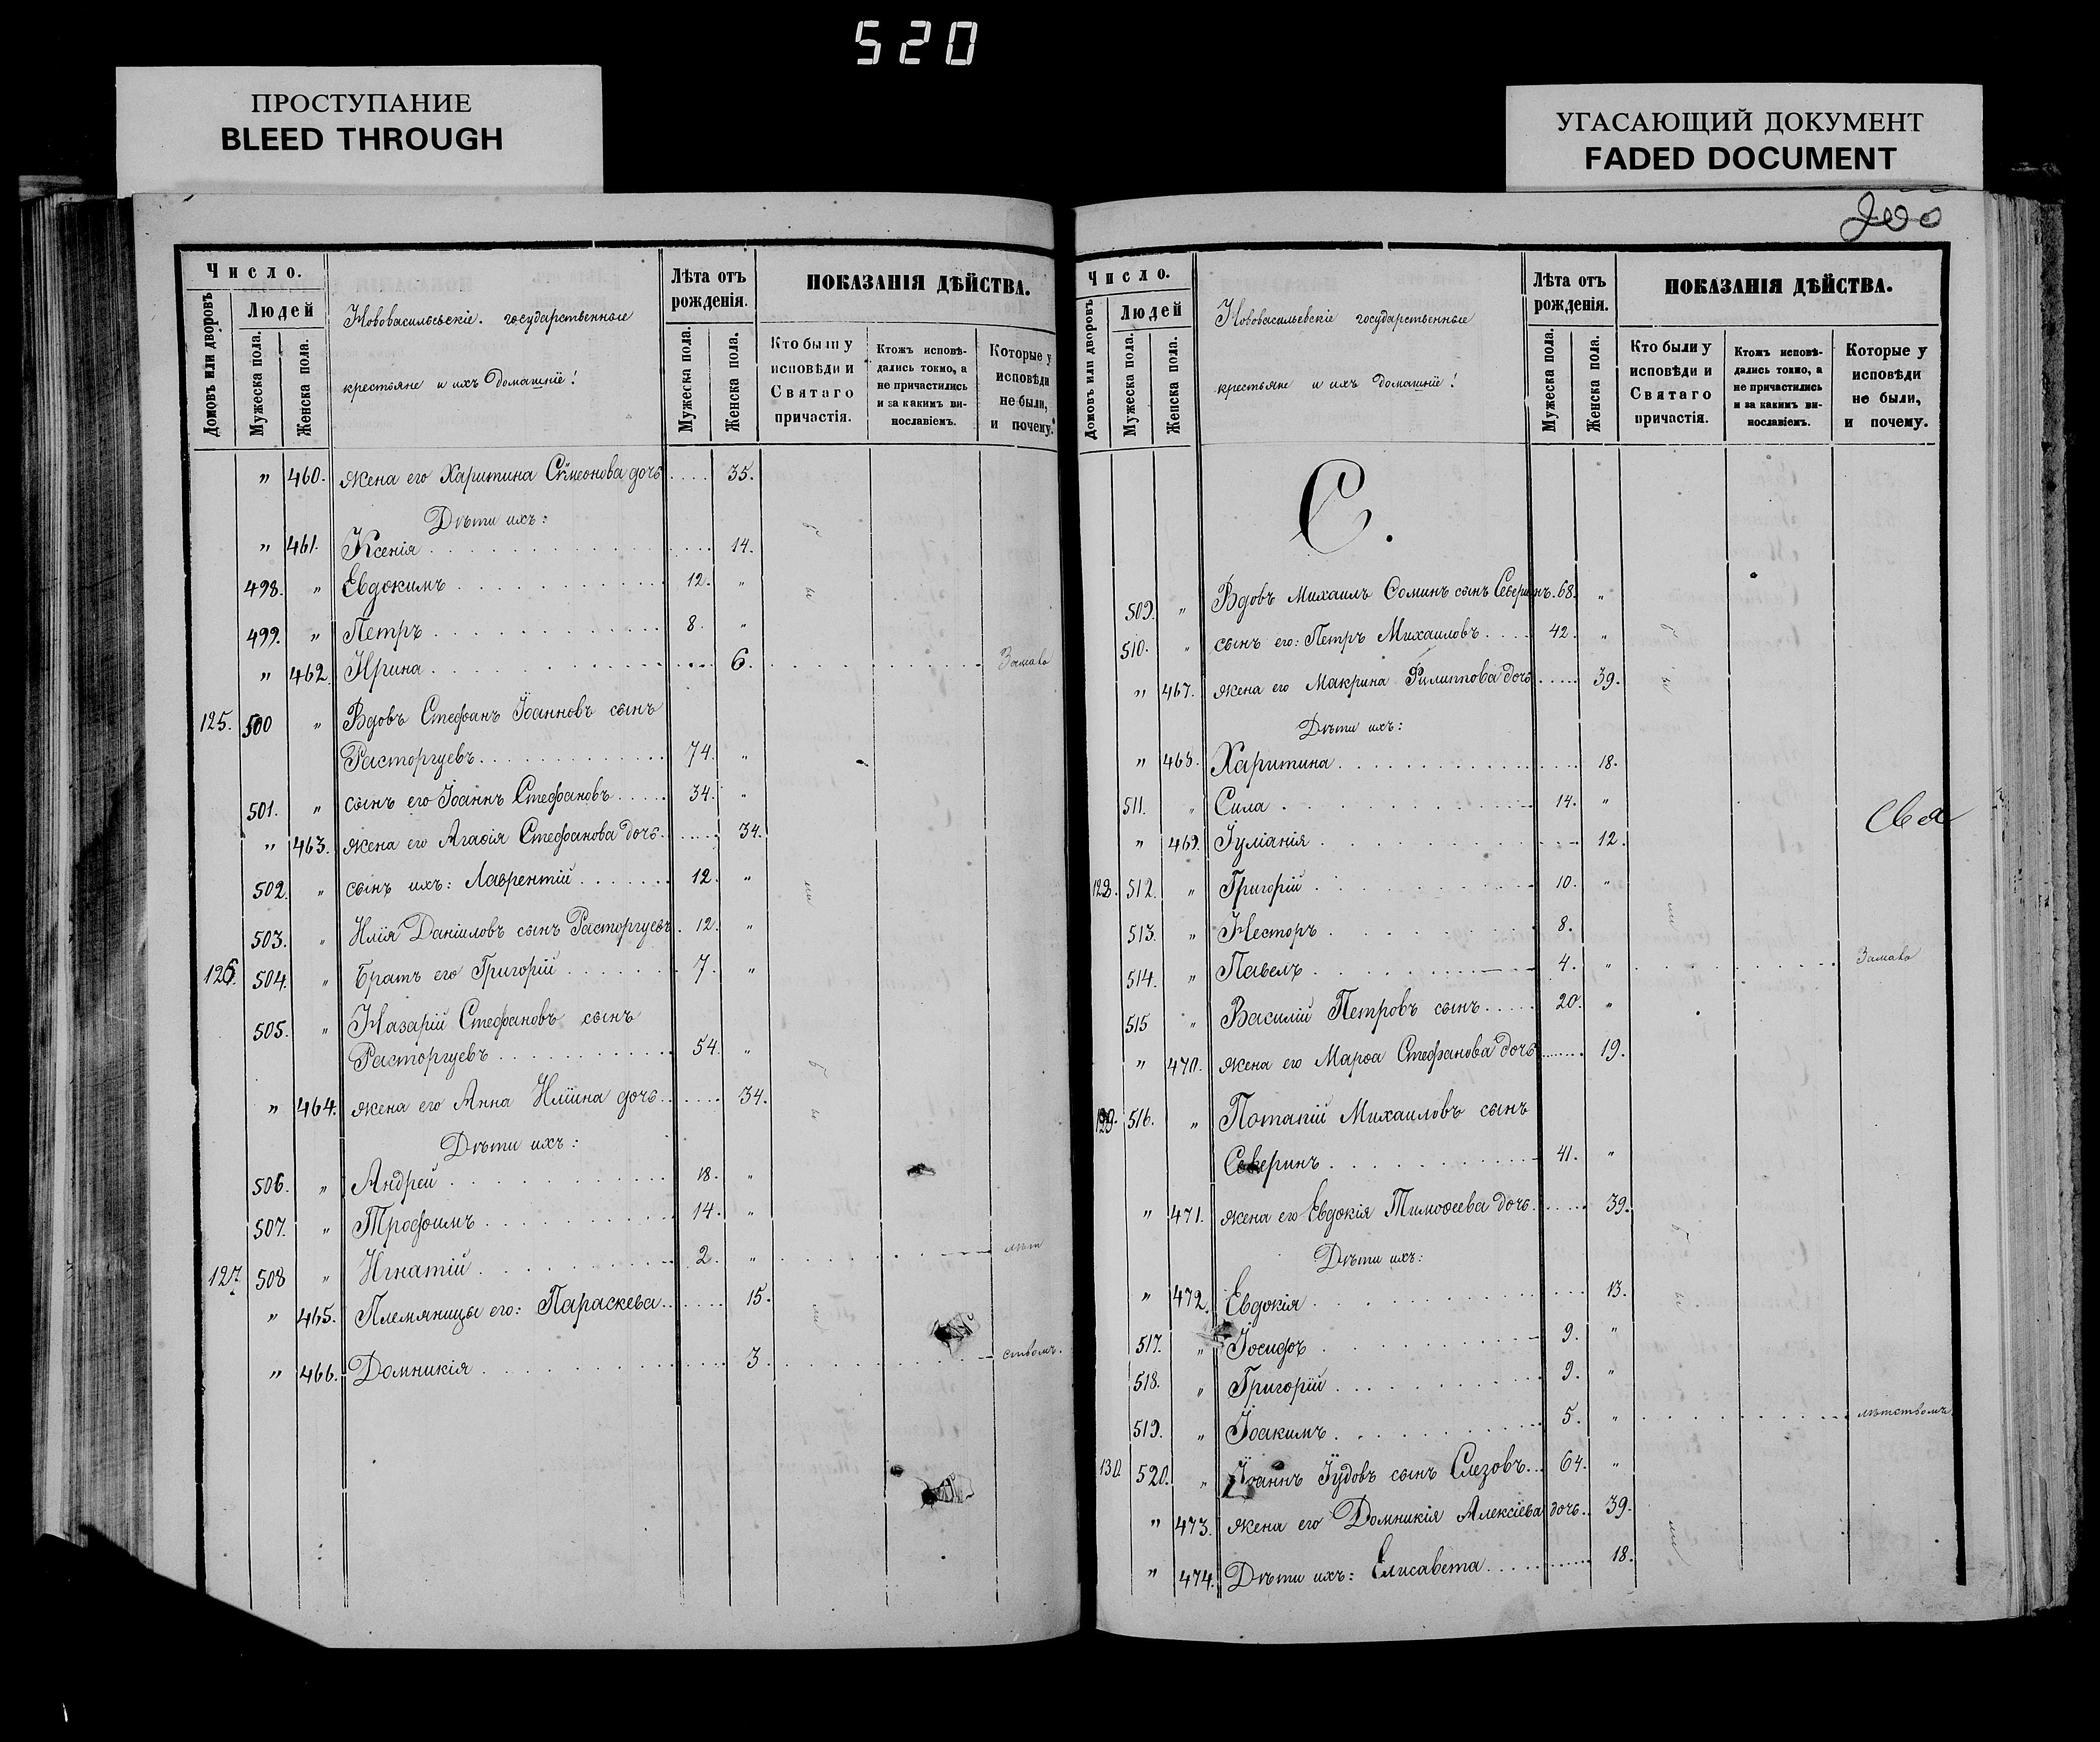 520
ПРОСТУПАНИЕ
BLEED THROUGH
УГАСАЮЩИЙ ДОКУМЕНТ
FADED DOCUMENT
Число.
Домовъ или дворовъ
Людей
Мужеска пола.
Женска пола.
Нововасильевскіе. государственные
крестьяне и ихъ домашніе!
Лѣта отъ рожденія.
Мужеска пола
Женска пола.
ПОКАЗАНІЯ ДѢЙСТВА.
Кто были у исповѣди и Святаго причастія.
Ктожъ исповѣдались токмо, а не причастились и за какимъ винославіемъ.
Которые у исповѣди не были, и почему.
" 460. жена его Харитина Симеонова дочь 35.
Дѣти ихъ:
" 461. Ксенія 14.
498. " Евдокимъ 12. "
499. " Петръ 8. "
" 462. Ирина 6. Замало
125. 500 " Вдовъ Стефанъ Іоанновъ сынъ
Расторгуевъ 74. "
501. " сынъ его Іоаннъ Стефановъ 34. "
" 463. жена его Агаѳія Стефанова дочь 34.
502. " сынъ ихъ: Лаврентій 12. "
503. " Илія Даніиловъ сынъ Расторгуевъ 12. "
126. 504. " Братъ его Григорій 7. "
505. " Назарій Стефановъ сынъ
Расторгуевъ 54. "
" 464. жена его Анна Иліина дочь 34.
Дѣти ихъ:
506. " Андрей 18. "
507. " Трофимъ 14. "
127. 508 " Игнатій 2. " лѣт
" 465. Племяницы его: Параскева 15.
" 466. Домникія 3. ствомъ.
200
Число.
Домовъ или дворовъ
Людей
Мужеска пола.
Женска пола.
Нововасильевскіе государственные
крестьяне и ихъ домашніе!
Лѣта отъ рожденія.
Мужеска пола
Женска пола.
ПОКАЗАНІЯ ДѢЙСТВА.
Кто были у исповѣди и Святаго причастія.
Ктожъ исповѣдались токмо, а не причастились и за какимъ винославіемъ.
Которые у исповѣди не были, и почему.
С.
509. " Вдовъ Михаилъ Соминъ сынъ Северинъ. 68. "
510. " сынъ его: Петръ Михаиловъ 42. "
" 467. жена его Макрина Филиппова дочь 39.
Дѣти ихъ:
" 468. Харитина 18.
511. " Сила 14. "
Свя
" 469. Іуліанія 12.
128. 512. " Григорій 10. "
513. " Несторъ 8.
514. " Павелъ 4. " Замало
515 " Василій Петровъ сынъ 20. "
" 470. жена его Марѳа Стефанова дочь 19.
129. 516. " Потапій Михаиловъ сынъ
Северинъ 41. "
" 471. жена его Евдокія Тимоѳеева дочь 39.
Дѣти ихъ:
" 472. Евдокія 13.
517. " Іосифъ 9. "
518. " Григорій 9. "
519. " Іоакимъ 5. " лѣтствомъ.
130 520. " Іоаннъ Іудовъ сынъ Слезовъ 64. "
" 473. жена его Домникія Алексіева дочь 39.
" 474. Дѣти ихъ: Елисавета 18.